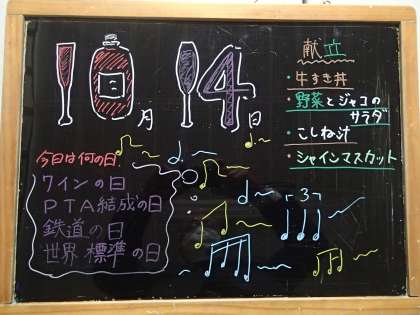 10月14日
今日は何の日
ワインの日
PTA結成の日
鉄道の日
世界標準の日
献立
・牛すき丼
・野菜とジャコの
サラダ
・こしね汁
・シャインマスカット
3